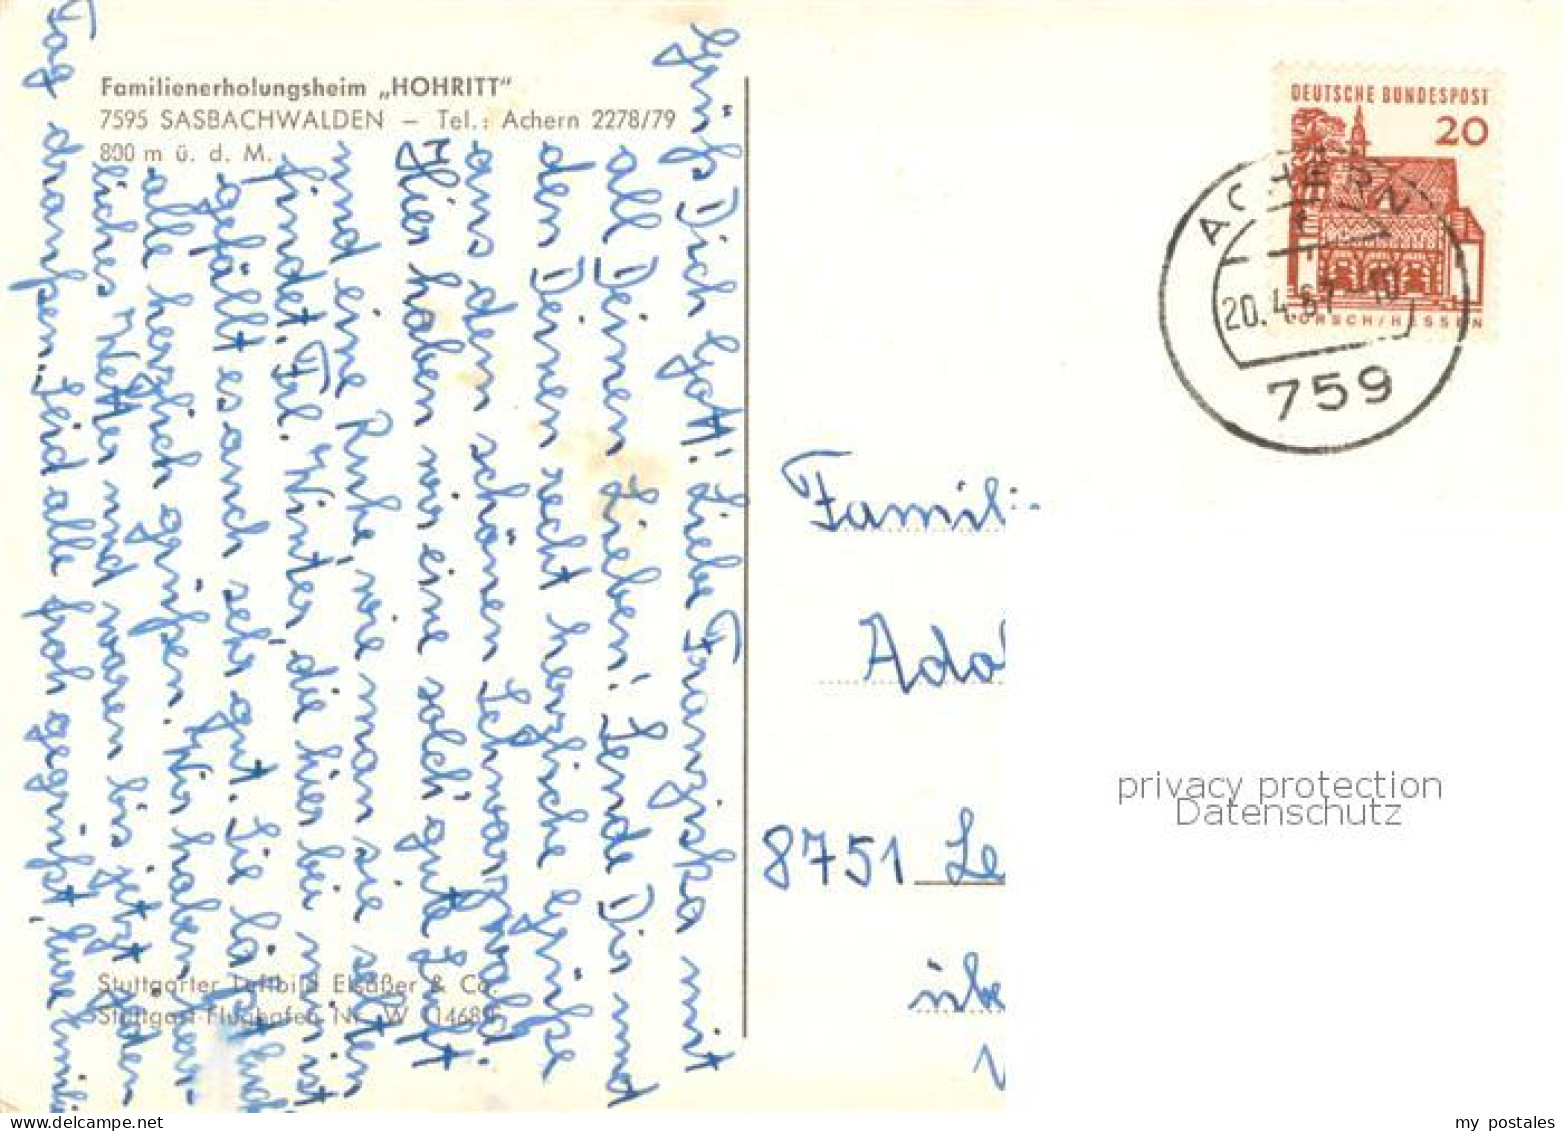 Familienerholungsheim „HOHRITT"
7595 SASBACHWALDEN – Tel.: Achern 2278/79
800 m ü. d. M.
Grüß Dich Gott! Liebe Franziska mit
all Deinen Lieben! Sende Dir und
den Deinen recht herzliche Grüße
aus dem schönen Schwarzwald.
Hier haben wir eine solch' gute Luft
und eine Ruhe, wie man sie selten
findet. Frl. Winter, die hier bei mir ist
gefällt es auch sehr gut. Sie läßt Euch
alle herzlich grüßen. Wir haben herr-
liches Wetter und waren bis jetzt jeden
Tag draußen. Seid alle froh gegrüßt, Eure
Stuttgarter Luftbild Elsäßer & Co.
Stuttgart-Flughafen Nr. W 114689
DEUTSCHE BUNDESPOST
20
LORSCH/HESSEN
ACHERN
20.4.67-10
759
Famili
Adol
8751 Le
übe
privacy protection
Datenschutz
my postales
www.delcampe.net